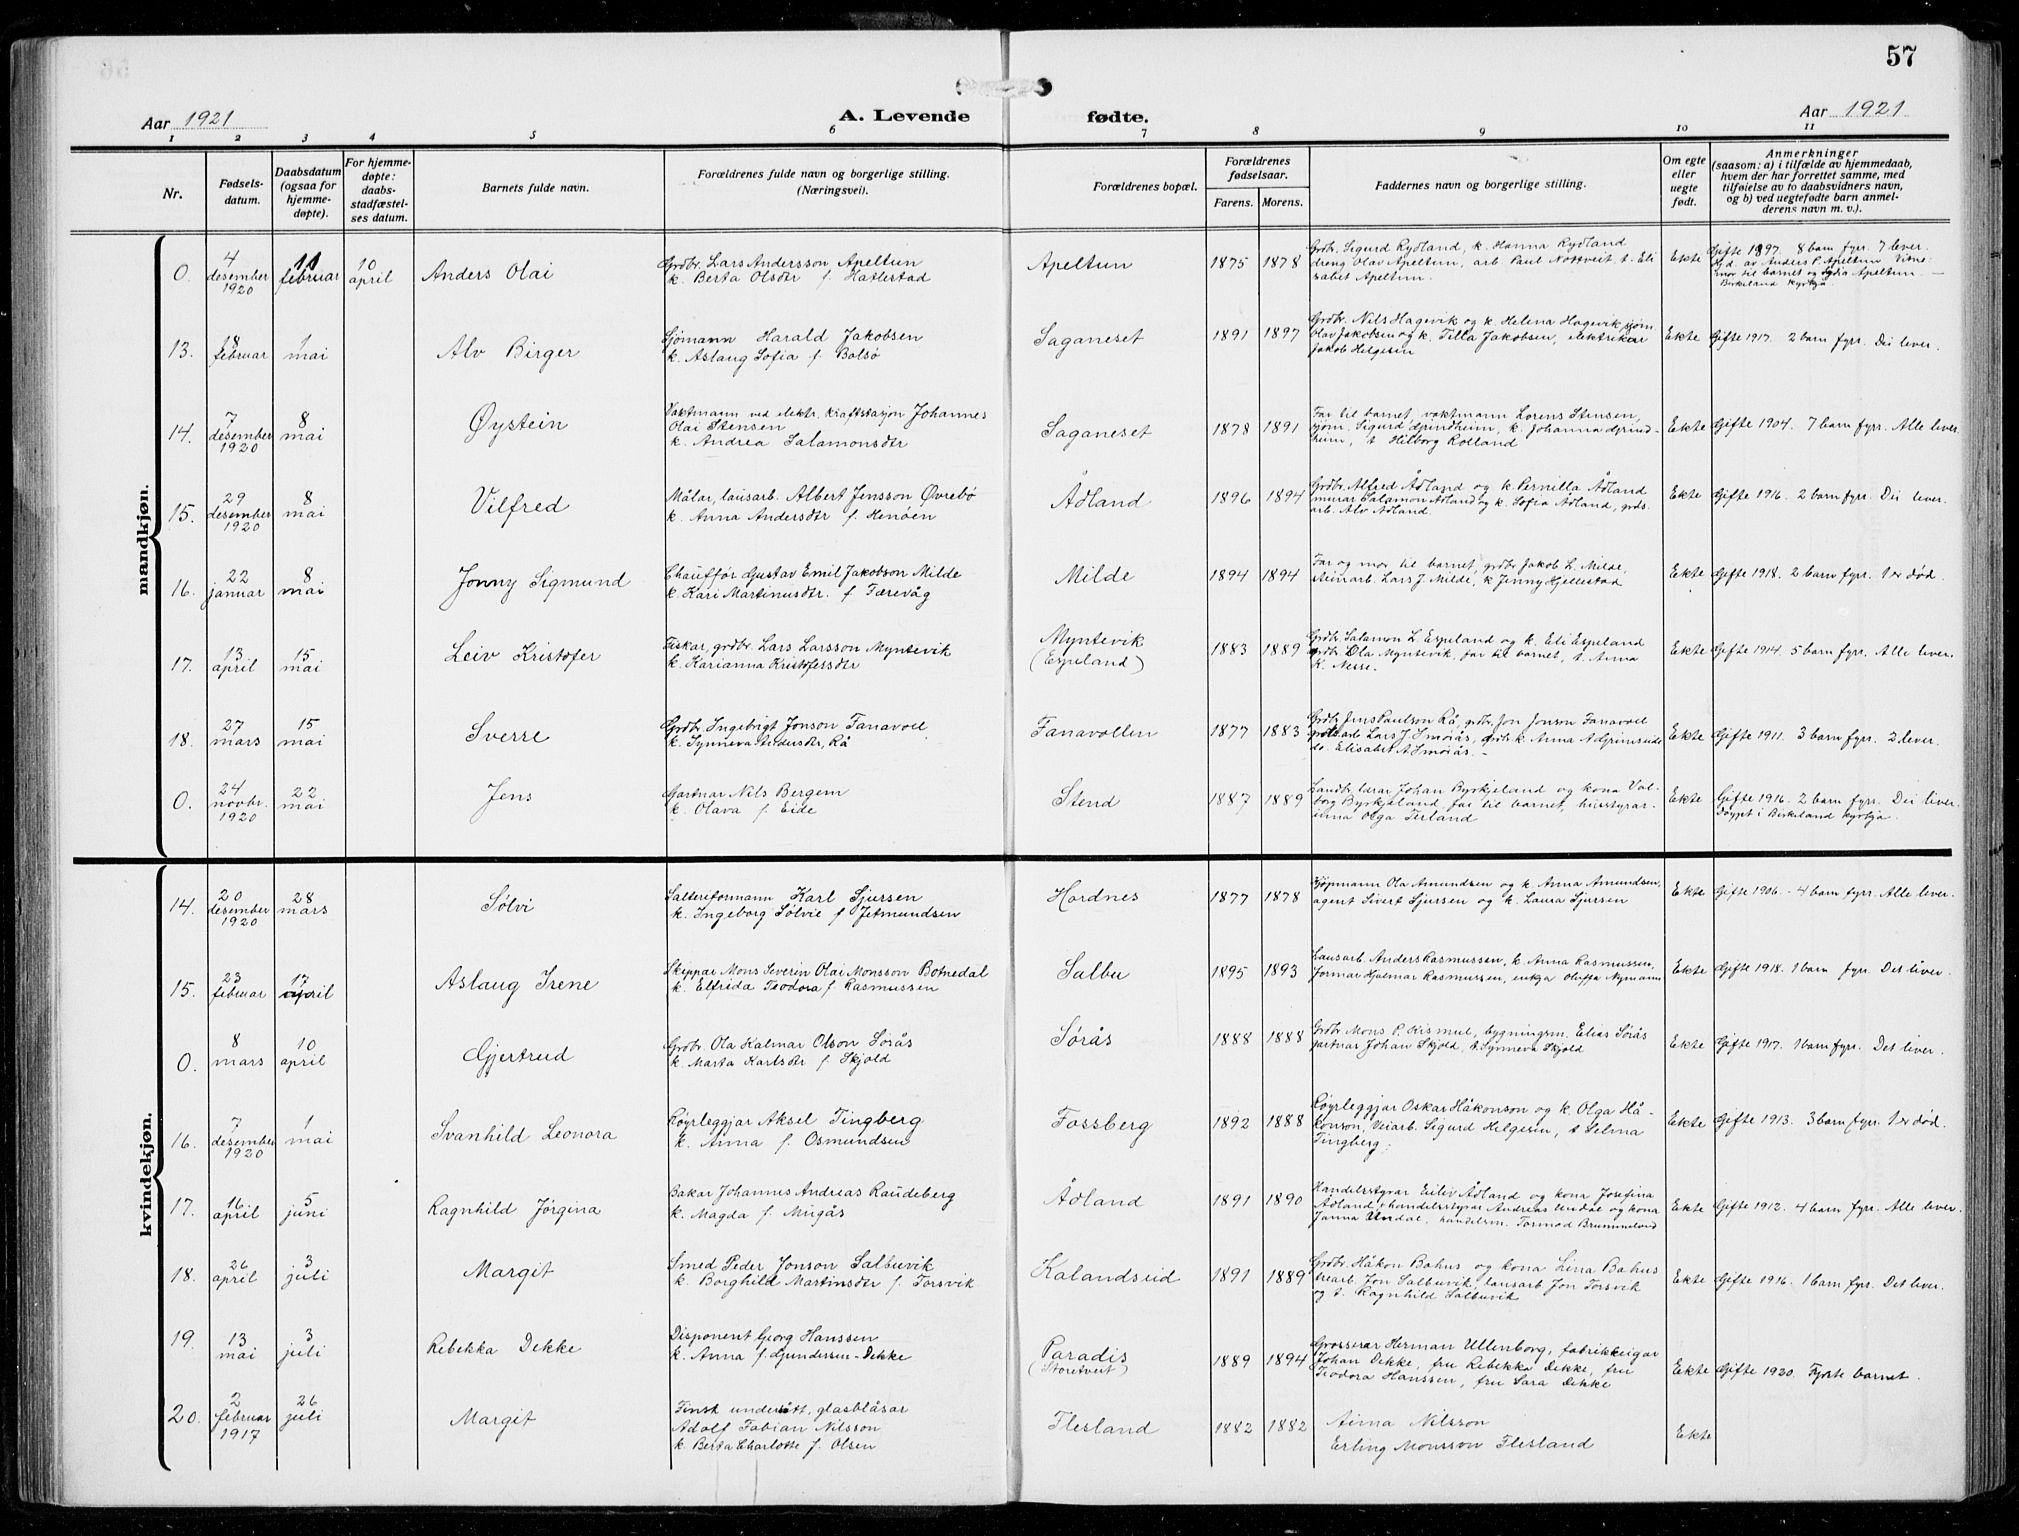 57
Aar 1921
A. Levende
fødte.
Aar 1921
1 2 3 4 5 6 7 8 9 10 11
Nr.
Fødsels-
datum.
Daabsdatum
(ogsaa for
hjemme-
døpte).
For hjemme-
døpte:
daabs-
stadfæstel-
ses datum.
Barnets fulde navn.
Forældrenes fulde navn og borgerlige stilling.
(Næringsvei).
Forældrenes bopæl.
Forældrenes
fødselsaar.
Farens. Morens.
Faddernes navn og borgerlige stilling.
Om egte
eller
uegte
født.
Anmerkninger
(saasom: a) i tilfælde av hjemmedaab,
hvem der har forrettet samme, med
tilføielse av to daabsvidners navn,
og b) ved uegtefødte barn anmel-
derens navn m. v.).
mandkjøn.
0.
4
desember
1920
11
februar
10
april
Anders Olai
Grdbr. Lars Andersson Apeltun
k. Berta Olsdtr f. Hatlestad
Apeltun
1875 1878
Grdbr. Sigurd Rydland, k. Hanna Rydland
dreng Olav Apeltun, arb. Paul Nottveit, t. Eli
sabet Apeltun.
Ekte
Gifte 1897. 8 barn fyr. 7 lever.
Hjd. av Anders P. Apeltun. Vitne
mor til barnet og Lydia Apeltun.
Birkeland kyrkja.
13.
18
februar
1
mai
Alv Birger
Sjømann Harald Jakobsen
k. Aslaug Sofia f. Bolsø
Saganeset
1891 1897
Grdbr. Nils Hagevik og k. Helena Hagevik, sjøm.
Olav Jakobsen og k. Tilla Jakobsen, elektrikar
Jakob Helgesen
Ekte
Gifte 1917. 2 barn fyrr. Dei lever.
14.
7
desember
1920
8
mai
Øystein
Vaktmann ved elektr. kraftstasjon Johannes
Olai Stensen
k. Andrea Salamonsdtr
Saganeset
1878 1891
Far til barnet, vaktmann Lorens Stensen,
sjøm. Sigurd Grindheim, k. Johanna Grind-
heim, t. Hilborg Rolland
Ekte
Gifte 1904. 7 barn fyrr. Alle lever.
15.
29
desember
1920
8
mai
Vilfred
Målar, lausarb. Albert Jensson Øvrebø
k. Anna Andersdtr f. Henøen
Ådland
1896 1894
Grdbr. Alfred Ådland og k. Pernilla Ådland
murar Salamon Ådland og k. Sofia Ådland, grds.
arb. Alv Ådland.
Ekte
Gifte 1916. 2 barn fyr. Dei lever.
16.
22
januar
8
mai
Jonny Sigmund
Chauffør Gustav Emil Jakobson Milde
k. Kari Martinusdtr. f Færevåg
Milde
1894 1894
Far og mor til barnet, grdbr Jakob L. Milde,
steinarb. Lars J. Milde, k. Jenny Hjellestad
Ekte
Gifte 1918. 2 barn fyrr. 1 er død.
17.
13
april
15
mai
Leiv Kristofer
Fiskar, grdbr. Lars Larsson Myntevik
k. Karianna Kristofersdtr
Myntevik
(Espeland)
1883 1889
Grdbr. Salamon L. Espeland og k. Eli Espeland
grdbr. Ola Myntevik, far til barnet, t. Anna
K. Nesse.
Ekte
Gifte 1914. 5 barn fyr. Alle lever.
18.
27
mars
15
mai
Sverre
Grdbr. Ingebrigt Jonson Fanavoll
k. Synneva Andersdtr, Rå
Fanavollen
1877 1883
Grdbr. Jens Paulson Rå, grdbr. Jon Jonson Fanavoll
grdsarb Lars J. Smørås, grdb k. Anna A Grimseide
do. Elisabet A Smørås. —
Ekte
Gifte 1911. 3 barn fyr. 2 lever.
0.
24
novbr.
1920
22
mai
Jens
Gartnar Nils Bergem
k. Olava f. Eide
Stend
1887 1889
Landbr. lærar Johan Byrkjeland og kona Val-
borg Byrkjeland, far til barnet, husstyrar-
inna Olga Tesland
Ekte
Gifte 1916. 2 barn fyr. Dei lever.
Døypt i Birkeland kyrkja.
kvindekjøn.
14.
20
desember
1920
28
mars
Sølvi
Salteriformann Karl Sjursen
k. Ingeborg Sølvie f Jetmundsen
Hordnes
1877 1878
Kjøpmann Ola Amundsen og k. Anna Amundsen,
agent Sivert Sjursen og k. Laura Sjursen
Ekte
Gifte 1906. - 4 barn fyr. Alle lever.
15.
23
februar
17
april
Aslaug Irene
Skippar Mons Severin Olai Monsson Botnedal
k. Elfrida Teodora f. Rasmussen
Salbu
1895 1893
Lausarb. Anders Rasmussen, k. Anna Rasmussen,
formar Hjalmar Rasmussen, enkja Oluffa Nymann
Ekte
Gifte 1918. 1 barn fyr. Det lever.
0.
8
mars
10
april
Gjertrud
Grdbr. Ola Kalmar Olson Sørås
k. Marta Karlsdtr f. Skjold
Sørås
1888 1888
Grdbr. Mons P. Rismul, bygningsm. Elias Sørås
gartnar Johan Skjold, t. Synneva Skjold
Ekte
Gifte 1917. 1 barn fyr. Det lever.
16.
7
desember
1920
1
mai
Svanhild Leonora
Røyrleggjar Aksel Tingberg
k. Anna f. Osmundsen
Fossberg
1892 1888
Røyrleggjar Oskar Håkonson og k. Olga Hå-
konson, Veiarb. Sigurd Helgesen, t Selma
Tingberg.
Ekte
Gifte 1913. 3 barn fyrr. 1 er død.
17.
16
april
5
juni
Ragnhild Jørgina
Bakar Johannes Andreas Raudeberg
k. Magda f. Mugås
Ådland
1891 1890
Handelsstyrar Eiliv Ådland og kona Josefina
Ådland, handelsstyrar Andreas Undal og kona
Janna Undal, handelsm. Tormod Brummeland
Ekte
Gifte 1912. 4 barn fyr. Alle lever.
18.
26
april
3
juli
Margit
Smed Peder Jonson Salbuvik
k. Borghild Martinsdtr f. Torsvik
Kalandseid
1891 1889
Grdbr. Håkon Bahus og kona Lina Bahus
trearb. Jon Salbuvik, lausarb Jon Torsvik
og t. Ragnhild Salbuvik
Ekte
Gifte 1916. 1 barn fyr. Det lever.
19.
13
mai
3
juli
Rebekka Dekke
Disponent Georg Hanssen
k. Anna f. Gundersen-Dekke
Paradis
(Storetveit)
1889 1894
Grosserar Herman Ullenborg, fabrikkeigar
Johan Dekke, fru Rebekka Dekke, fru
Teodora Hanssen, fru Sara Dekke
Ekte
Gifte 1920. Fyrste barnet.
20.
2
februar
1917
26
juli
Margit
Finsk undersått, glasblåsar
Adolf Fabian Nilsson
k. Berta Charlotte f. Olsen
Flesland
1882 1882
Aina Nilsson
Erling Monsson Flesland
Ekte